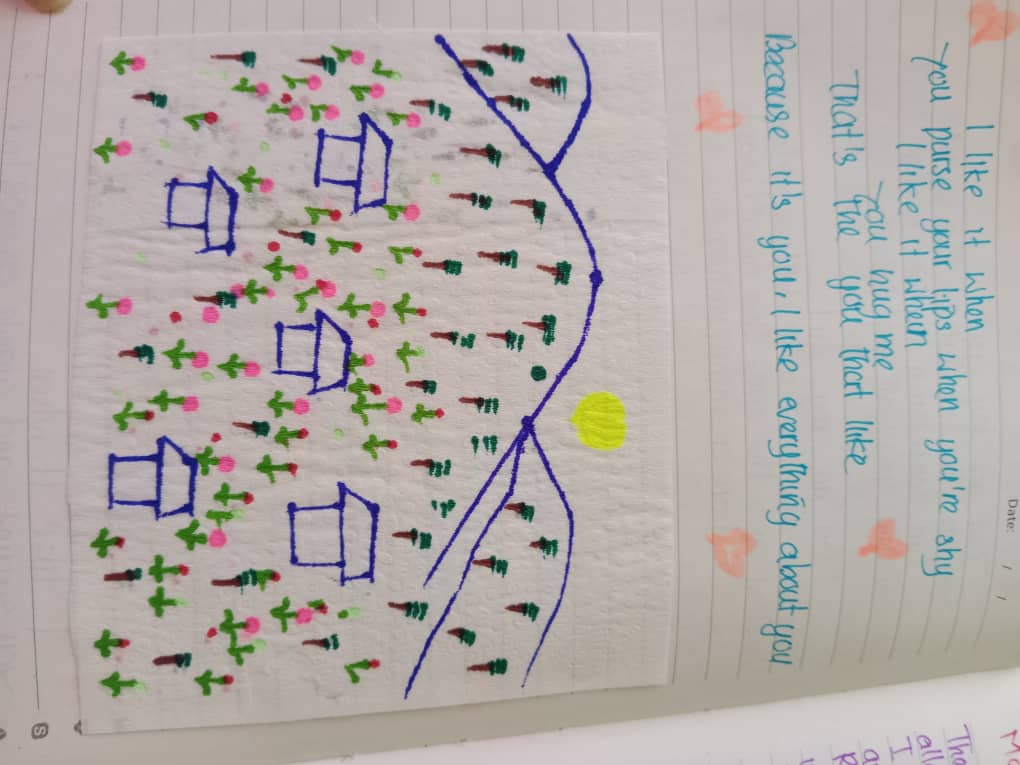 Date: / /
I like it when
you purse your lips when you're shy
I like it when
you hug me
That's the you that I like
Because it's you, I like everything about you
Tha
all
I
S